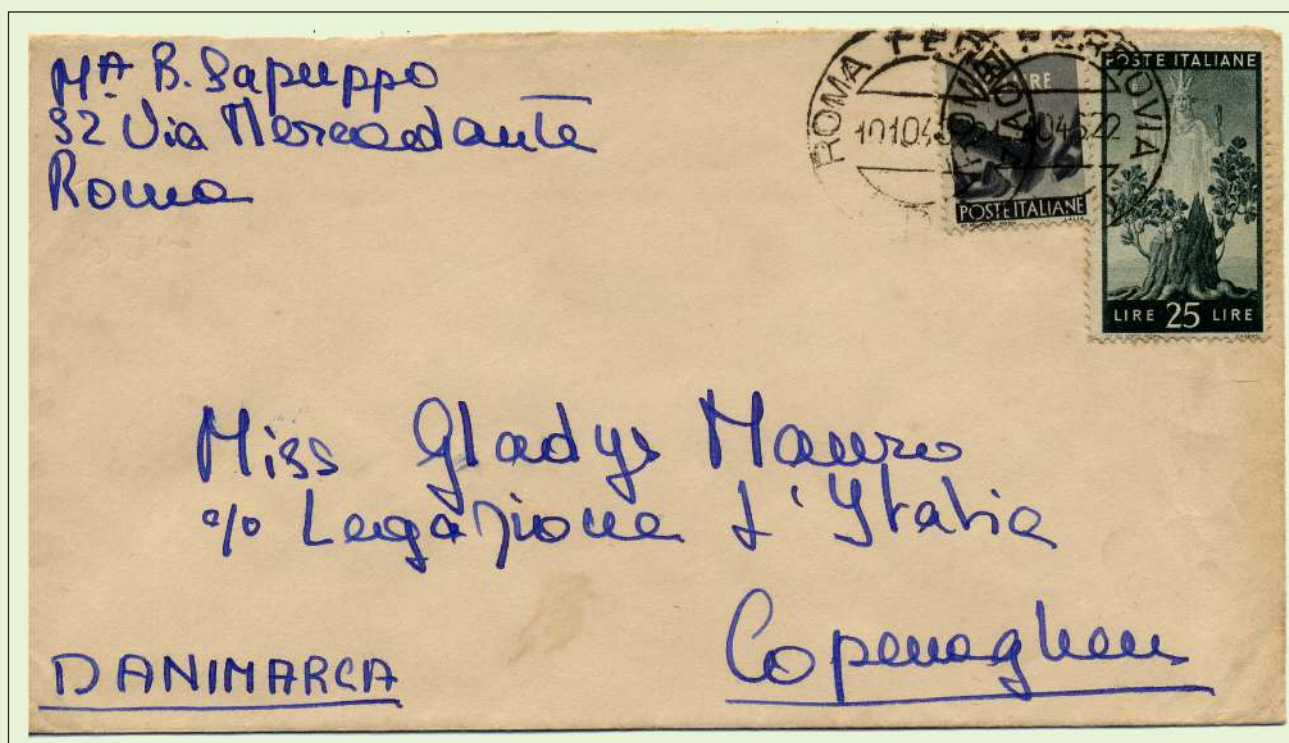 Mª B. Sapuppo
32 Via Mercadante
Roma
ROMA FERROVIA
ROMA FERROVIA
LIRE
POSTE ITALIANE
POSTE ITALIANE
LIRE 25 LIRE
Miss Gladys Mauro
c/o Legazione d'Italia
Copenaghen
DANIMARCA